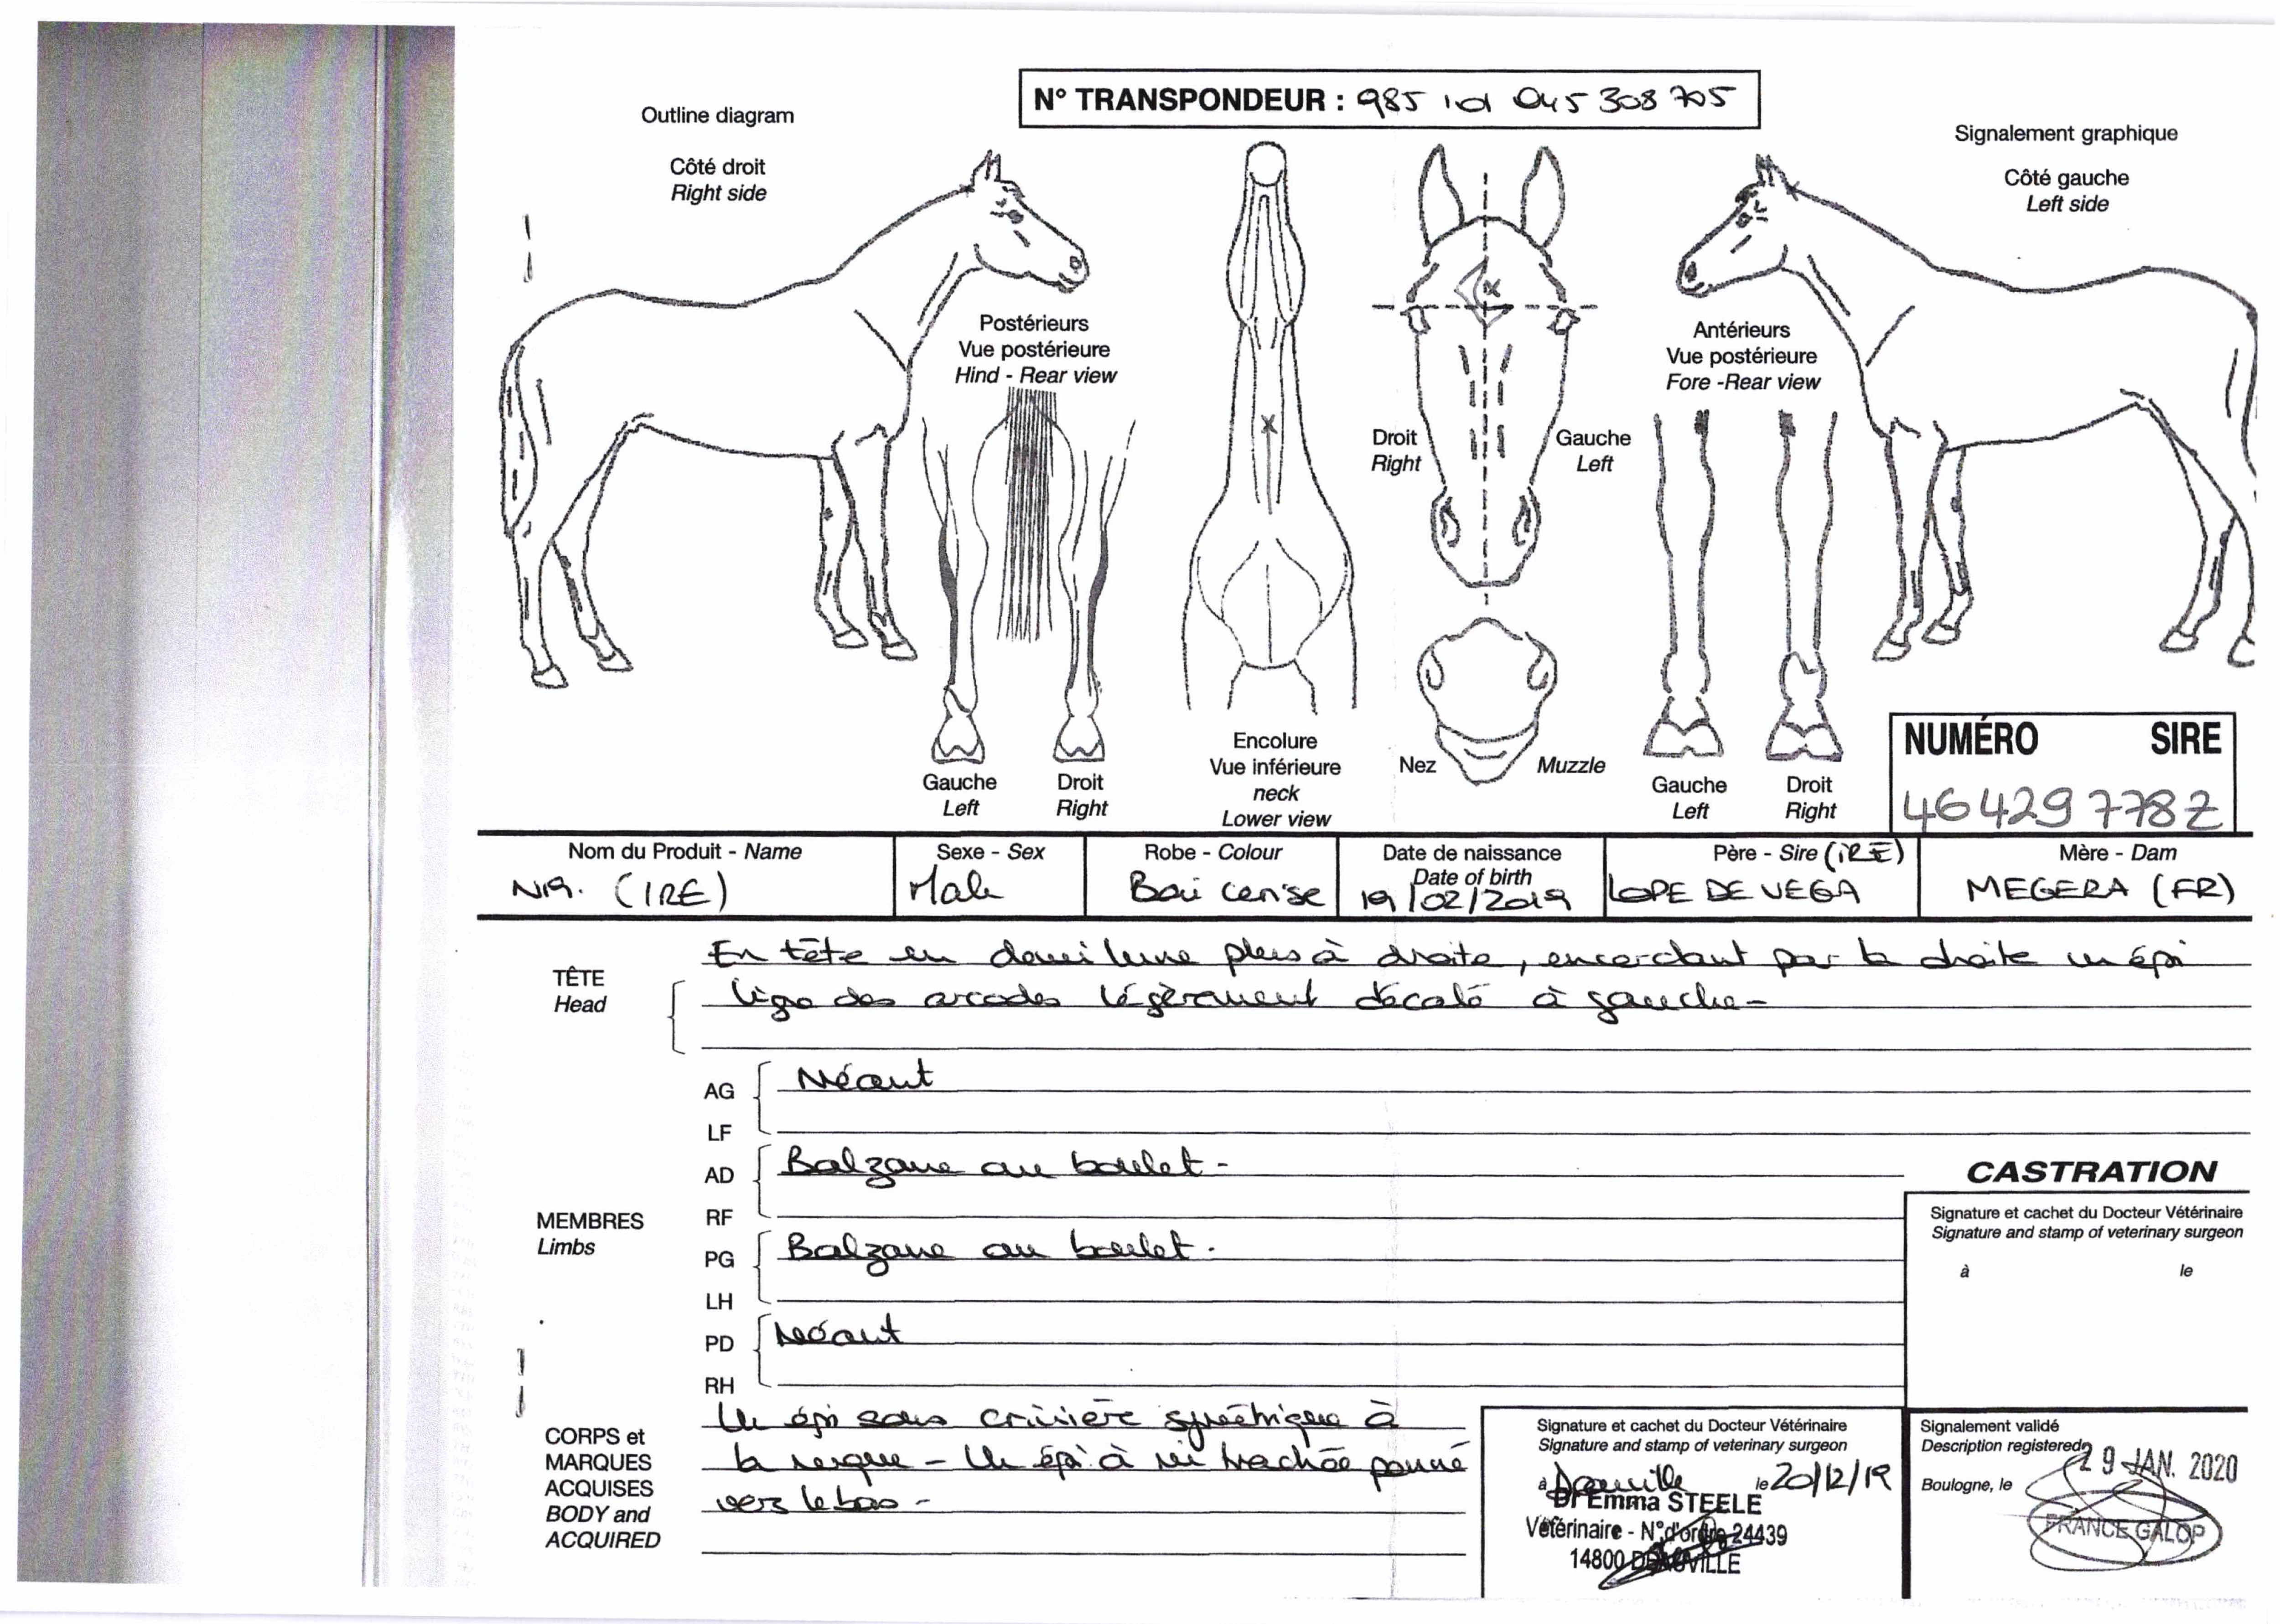 N° TRANSPONDEUR : 985 101 045 308 705
Outline diagram
Signalement graphique
Côté droit
Right side
Côté gauche
Left side
Postérieurs
Vue postérieure
Hind - Rear view
Antérieurs
Vue postérieure
Fore -Rear view
Droit
Right
Gauche
Left
Gauche
Left
Droit
Right
Encolure
Vue inférieure
neck
Lower view
Nez
Muzzle
Gauche
Left
Droit
Right
NUMÉRO SIRE
46429778Z
Nom du Produit - Name
(IRE)
Sexe - Sex
Male
Robe - Colour
Bai cerise
Date de naissance
Date of birth
19/02/2019
Père - Sire (IRE)
LOPE DE VEGA
Mère - Dam
MEGERA (FR)
TÊTE
Head
En tête en demi lune plus à droite, encerclant par la droite un épi
ligne des arcades légèrement décalé à gauche -
MEMBRES
Limbs
AG
LF
Néant
AD
RF
Balzane au boulet -
PG
LH
Balzane au boulet -
PD
RH
Néant
CASTRATION
Signature et cachet du Docteur Vétérinaire
Signature and stamp of veterinary surgeon
à le
CORPS et
MARQUES
ACQUISES
BODY and
ACQUIRED
Un épi sous crinière symétrique à
la nuque - Un épi à mi trachée penné
vers le bas -
Signature et cachet du Docteur Vétérinaire
Signature and stamp of veterinary surgeon
à Deauville le 20/12/19
Dr Emma STEELE
Vétérinaire - N° d'ordre 24439
14800 DEAUVILLE
Signalement validé
Description registered
29 JAN. 2020
Boulogne, le
FRANCE GALOP